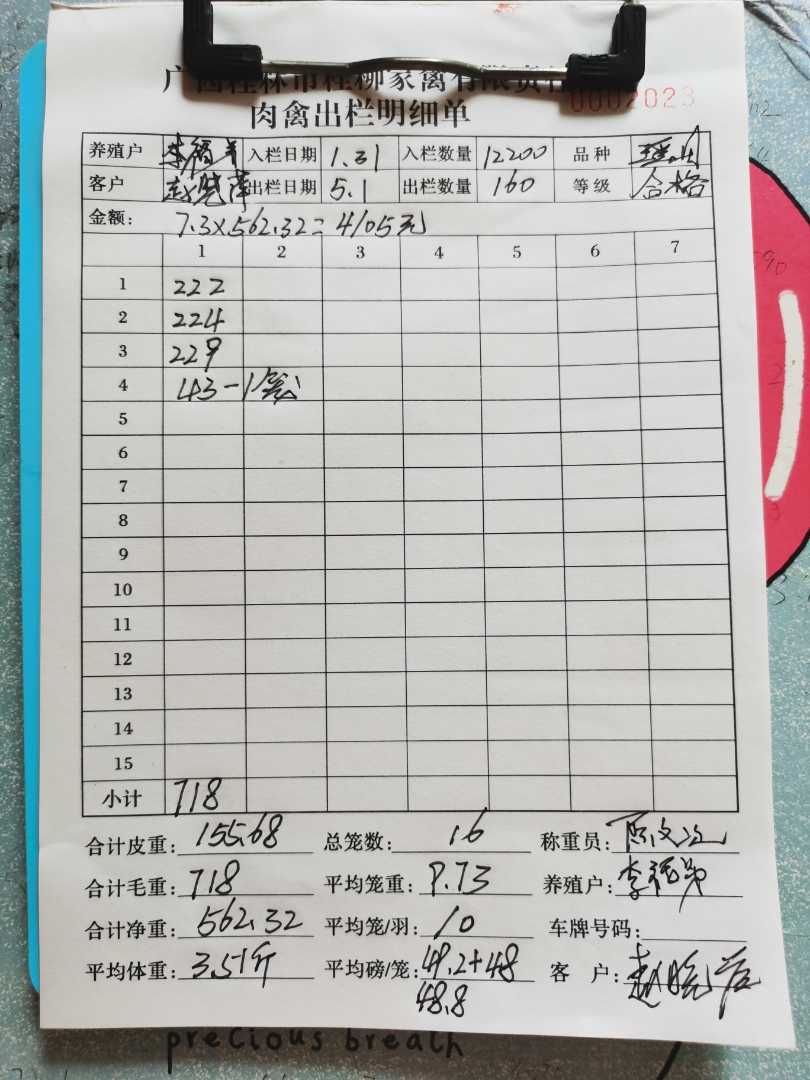 广西桂林市桂柳家禽有限责任
肉禽出栏明细单 0002023
养殖户 李福弟 入栏日期 1.31 入栏数量 12200 品种
客户 赵晓萍 出栏日期 5.1 出栏数量 160 等级 合格
金额: 7.3×562.32=4105元
1 2 3 4 5 6 7
1 222
2 224
3 229
4 43-1笼
5
6
7
8
9
10
11
12
13
14
15
小计 718
合计皮重: 155.68 总笼数: 16 称重员:
合计毛重: 718 平均笼重: 9.73 养殖户: 李福弟
合计净重: 562.32 平均笼/羽: 10 车牌号码:
平均体重: 3.51斤 平均磅/笼: 49.2+48 客 户: 赵晓萍
48.8
precious breath